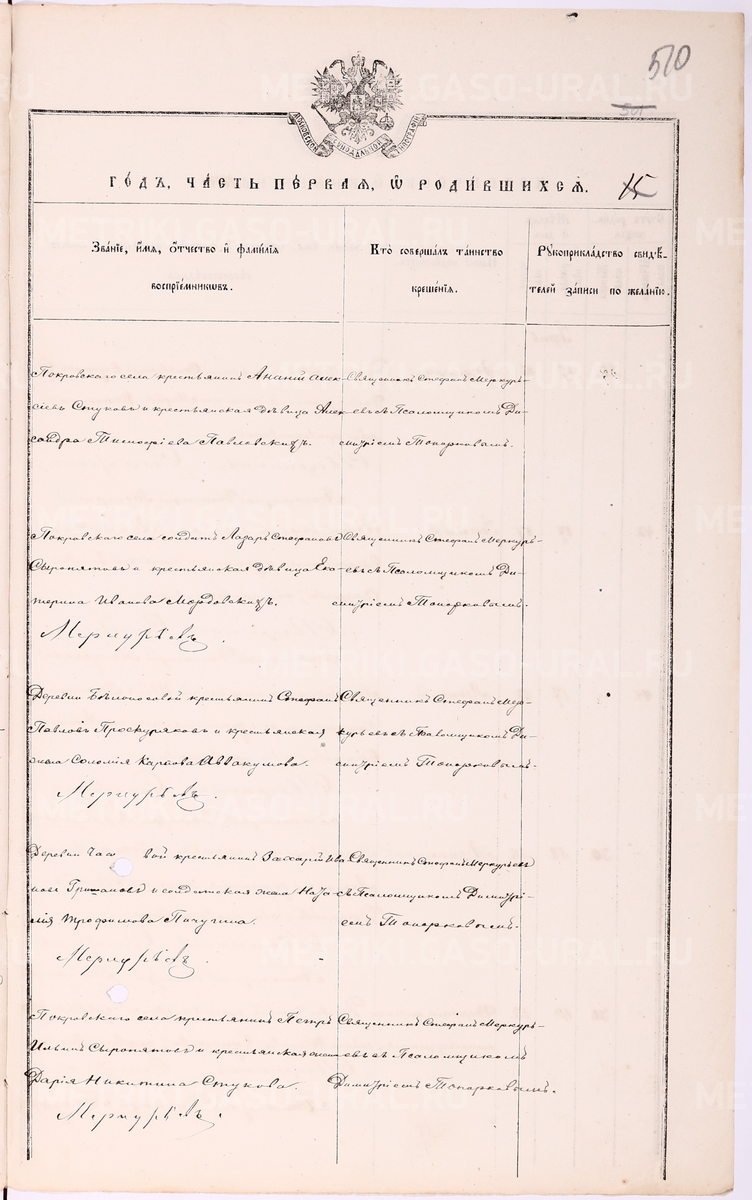 510
МОСКОВСКОЙ СѴНОДАЛЬНОЙ ТИПОГРАФІИ
ГО́ДЪ, ЧА́СТЬ ПЕ́РВАЯ, Ѡ҆ РОДИ́ВШИХСѦ.
15
Зва́нїе, и҆́мѧ, ѻ҆́тчество и҆ фами́лїѧ
воспрїе́мникѡвъ.
Кто̀ соверша́лъ та́инство
креще́нїѧ.
Рꙋкоприкла́дство свидѣ́-
телей за́писи по жела́нїю.
Покровскаго села крестьянинъ Ананій Алек-
сіевъ Стуковъ и крестьянская дѣвица Алек-
сандра Тимофіева Павловскихъ.
Священникъ Стефанъ Меркурь-
евъ съ Псаломщикомъ Ди-
митріемъ Топорковымъ.
Покровскаго села солдатъ Лазарь Стефановъ
Сыропятовъ и крестьянская дѣвица Ека-
терина Иванова Мордовскихъ.
Меркурьевъ.
Священникъ Стефанъ Меркурь-
евъ съ Псаломщикомъ Ди-
митріемъ Топорковымъ.
Деревни Бѣлоносовой крестьянинъ Стефанъ
Павловъ Проскуряковъ и крестьянская
жена Соломія Карпова Аввакумова.
Меркурьевъ.
Священникъ Стефанъ Мер-
курьевъ съ Псаломщикомъ Ди-
митріемъ Топорковымъ.
Деревни Час вой крестьянинъ Захарій Ива-
новъ и солдатская жена Ната-
лія Трофимова Пичугина.
Меркурьевъ
Священникъ Стефанъ Меркурьевъ
съ Псаломщикомъ Димитрі-
емъ Топорковымъ.
Покровскаго села крестьянинъ Петръ
Ильинъ Сыропятовъ и крестьянская жена
Дарія Никитина Стукова.
Меркурьевъ.
Священникъ Стефанъ Меркурь-
евъ съ Псаломщикомъ
Димитріемъ Топорковымъ.